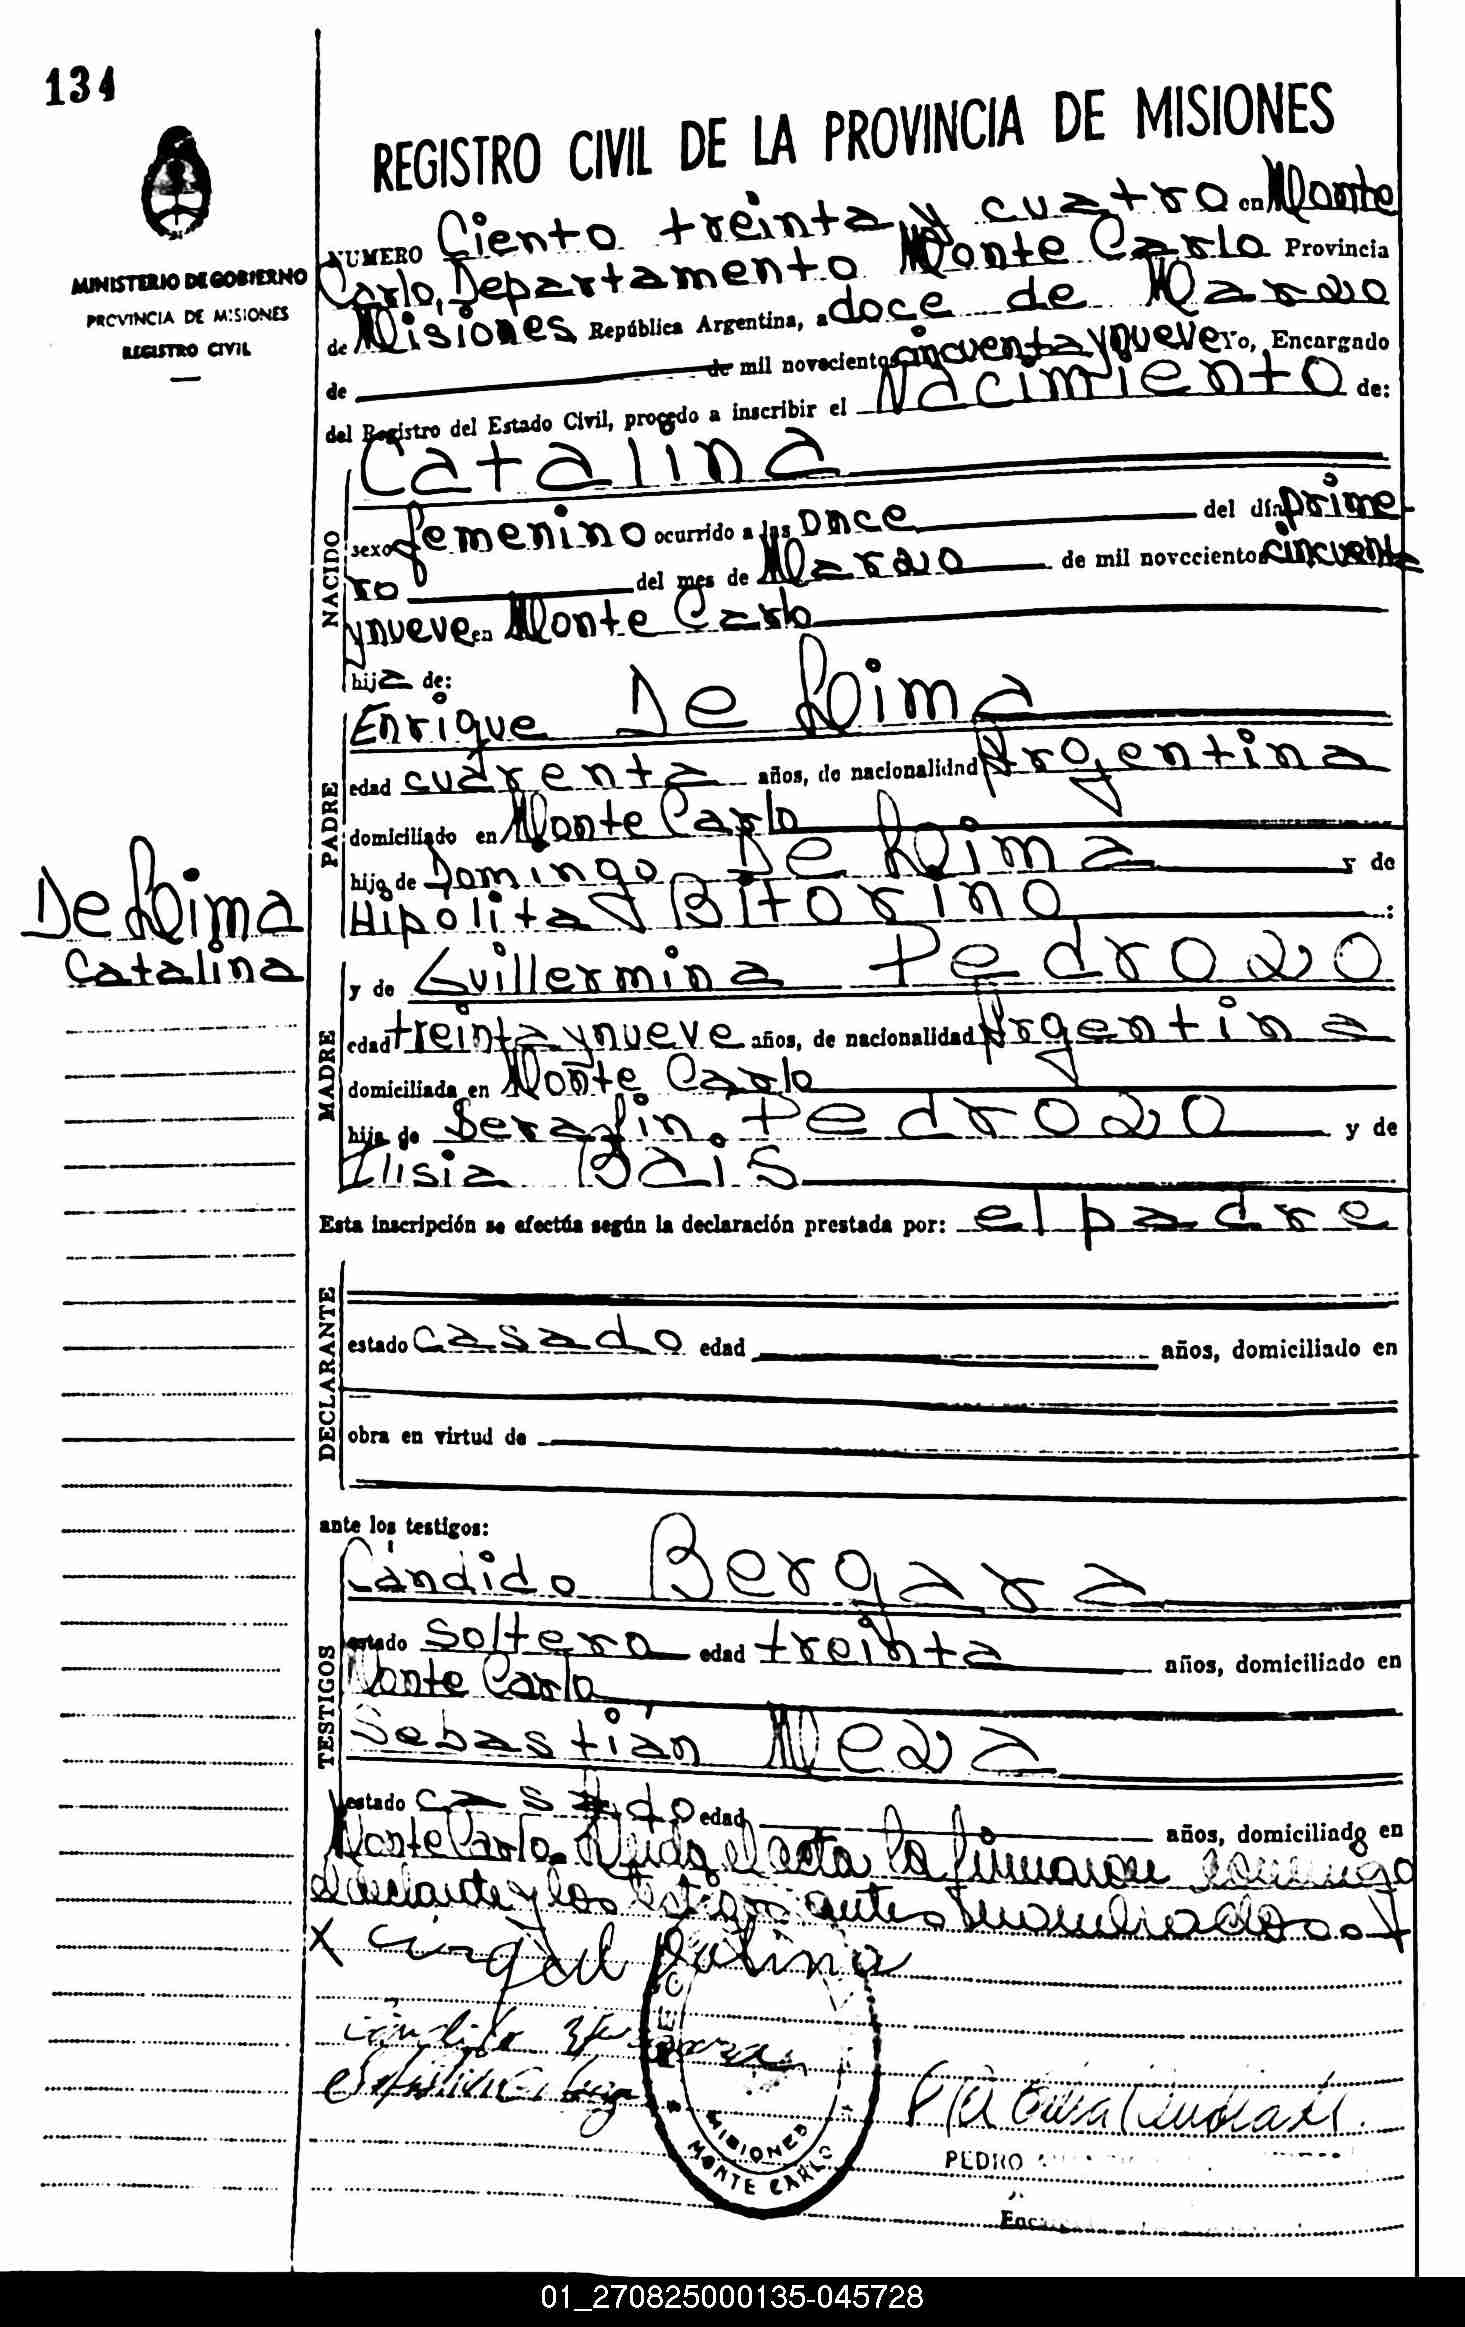 134
MINISTERIO DE GOBIERNO
PROVINCIA DE MISIONES
REGISTRO CIVIL
REGISTRO CIVIL DE LA PROVINCIA DE MISIONES
NUMERO Ciento treinta y cuatro en Monte
Carlo, Departamento Monte Carlo Provincia
de Misiones República Argentina, a doce de Marzo
de de mil novecientos cincuenta y nueve Yo, Encargado
del Registro del Estado Civil, procedo a inscribir el Nacimiento de:
NACIDO
Catalina
sexo femenino ocurrido a las once del día prime-
ro del mes de Marzo de mil novecientos cincuenta
y nueve en Monte Carlo
hija de:
PADRE
Enrique De Lima
edad cuarenta años, de nacionalidad Argentina
domiciliado en Monte Carlo
hijo de Domingo De Lima y de
Hipolita Bitorino :
De Lima
Catalina
MADRE
y de Guillermina Pedrozo
edad treinta y nueve años, de nacionalidad Argentina
domiciliada en Monte Carlo
hija de Serafin Pedrozo y de
Elisia Bais
Esta inscripción se efectúa según la declaración prestada por: el padre
DECLARANTE
estado casado edad años, domiciliado en
obra en virtud de
ante los testigos:
TESTIGOS
Cándido Bergara
estado soltero edad treinta años, domiciliado en
Monte Carlo
Sebastián Meza
estado casado edad años, domiciliado en
Monte Carlo. Leida el acta la firmaron conmigo
el declarante y los testigos antes nombrados.
X
MISIONES
MONTE CARLO
PEDRO
01_270825000135-045728